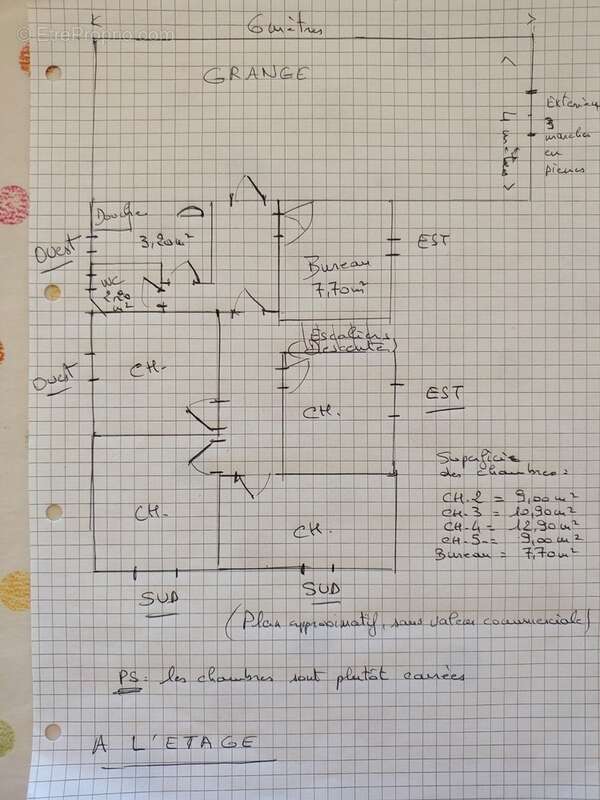 © EtreProprio.com
6 mètres
GRANGE
Extérieur
3
marches
en
pierres
Douche
3,20 m²
Ouest
WC
2,20
m²
Bureau
7,70 m²
EST
Escaliers
Descente
Ouest
CH.
CH.
EST
CH.
CH.
Superficie
des chambres:
CH.2 = 9,00 m²
CH.3 = 10,90 m²
CH.4 = 12,90 m²
CH.5 = 9,00 m²
Bureau = 7,70 m²
SUD
SUD
(Plan approximatif, sans valeur commerciale)
PS: les chambres sont plutôt carrées
A L'ETAGE